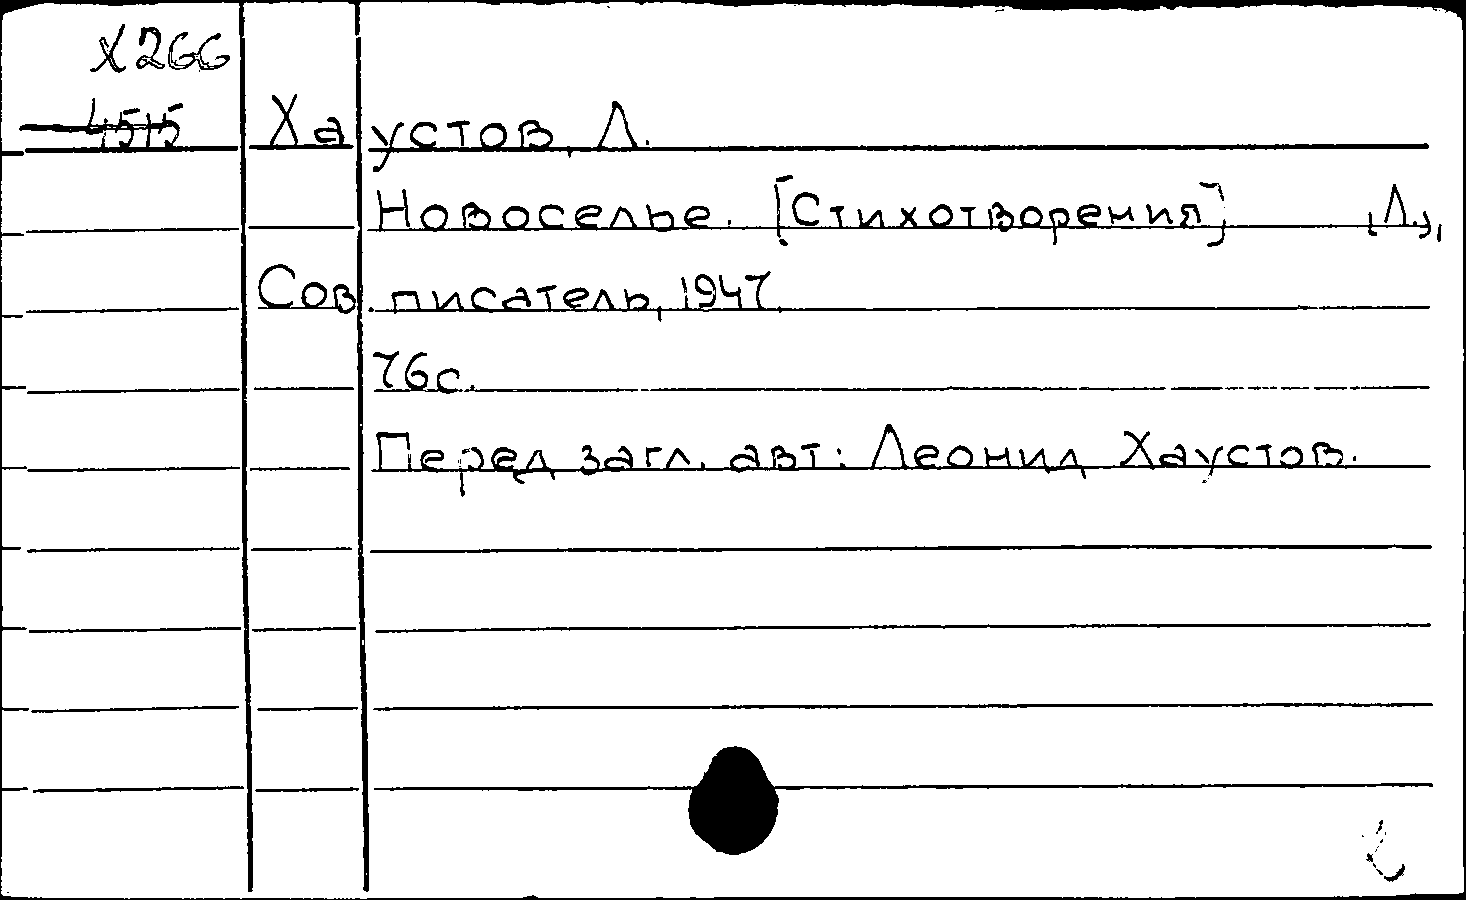 Х266
4515
Хаустов, Л.
Новоселье. [Стихотворения] [Л.],
Сов. писатель, 1947.
76с.
Перед загл. авт: Леонид Хаустов.